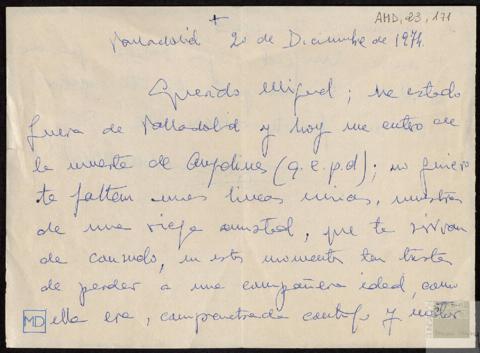 +
AMD, 23, 171
Valladolid 20 de Diciembre de 1974.
Querido Miguel; he estado
fuera de Valladolid y hoy me entero de
la muerte de Angelines (q.e.p.d); no quiero
te falten unas lineas mias, muestra
de una vieja amistad, que te sirvan
de consuelo, en estos momentos tan tristes
de perder a una compañera ideal, como
ella era, compenetrada contigo y
MD